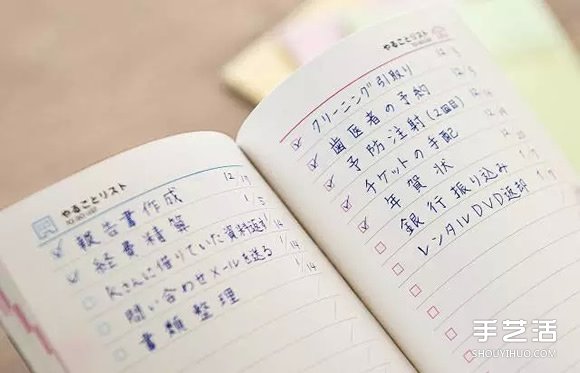 やることリスト
TO DO LIST
報告書作成 12/19
経費精算 1/5
Kさんに借りていた資料返す 1/14
問い合わせメールを送る 1/14
書類整理 1/14
やることリスト
TO DO LIST
クリーニング引取り 12/3
歯医者の予約 12/5
予防注射(2回目) 12/
チケットの手配 12/
年賀状 12/20
銀行振り込み 1/7
レンタルDVD返却 1/7
手艺活
SHOUYIHUO.COM